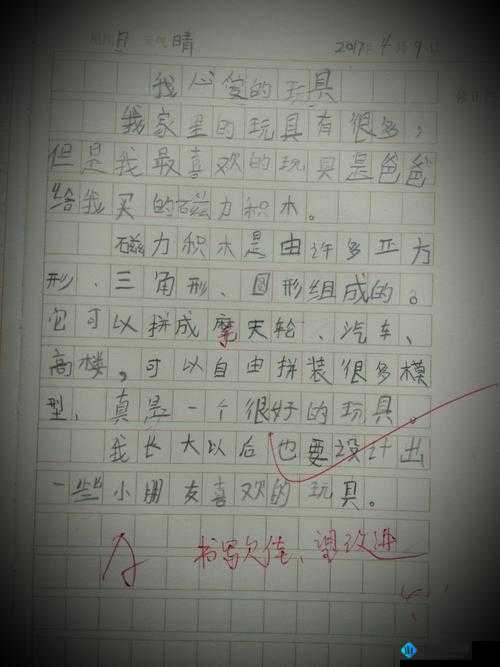 日 晴 2017 4 9
我心爱的玩具
我家里的玩具有很多，
但是我最喜欢的玩具是爸爸
给我买的磁力积木。
磁力积木是由许多正方
形、三角形、圆形组成的。
它可以拼成摩天轮、汽车、
高楼，可以自由拼装很多模
型，真是一个很好的玩具。
我长大以后也要设计出
一些小朋友喜欢的玩具。
书写欠佳，请改进